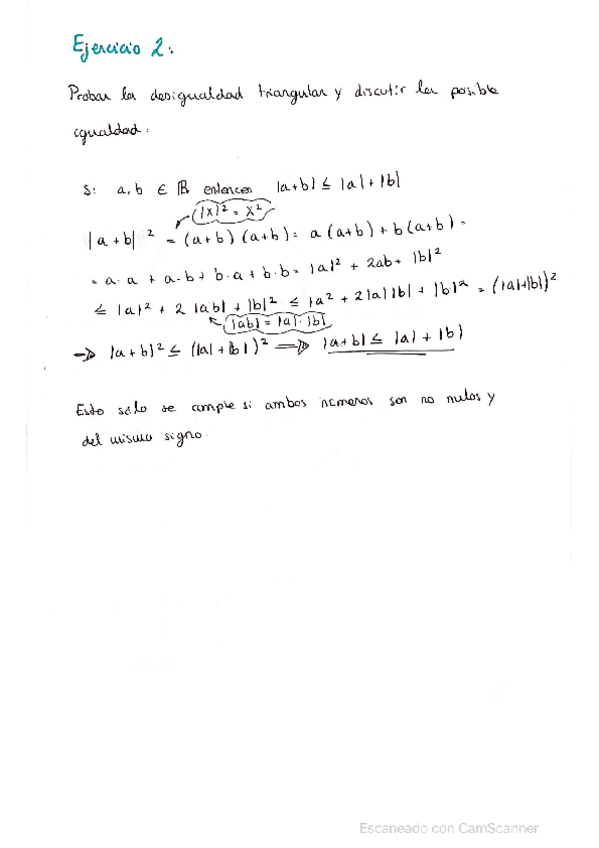 Ejercicio 2:
Probar la desigualdad triangular y discutir la posible
igualdad:
Si a, b ∈ ℝ entonces |a+b| ≤ |a| + |b|
|x|² = x²
|a+b|² = (a+b)(a+b) = a(a+b) + b(a+b) =
= a·a + a·b + b·a + b·b = |a|² + 2ab + |b|²
≤ |a|² + 2|ab| + |b|² ≤ |a² + 2|a||b| + |b|² = (|a|+|b|)²
|ab| = |a|·|b|
⇒ |a+b|² ≤ (|a|+|b|)² ⇒ |a+b| ≤ |a| + |b|
Esto sólo se cumple si ambos números son no nulos y
del mismo signo.
Escaneado con CamScanner